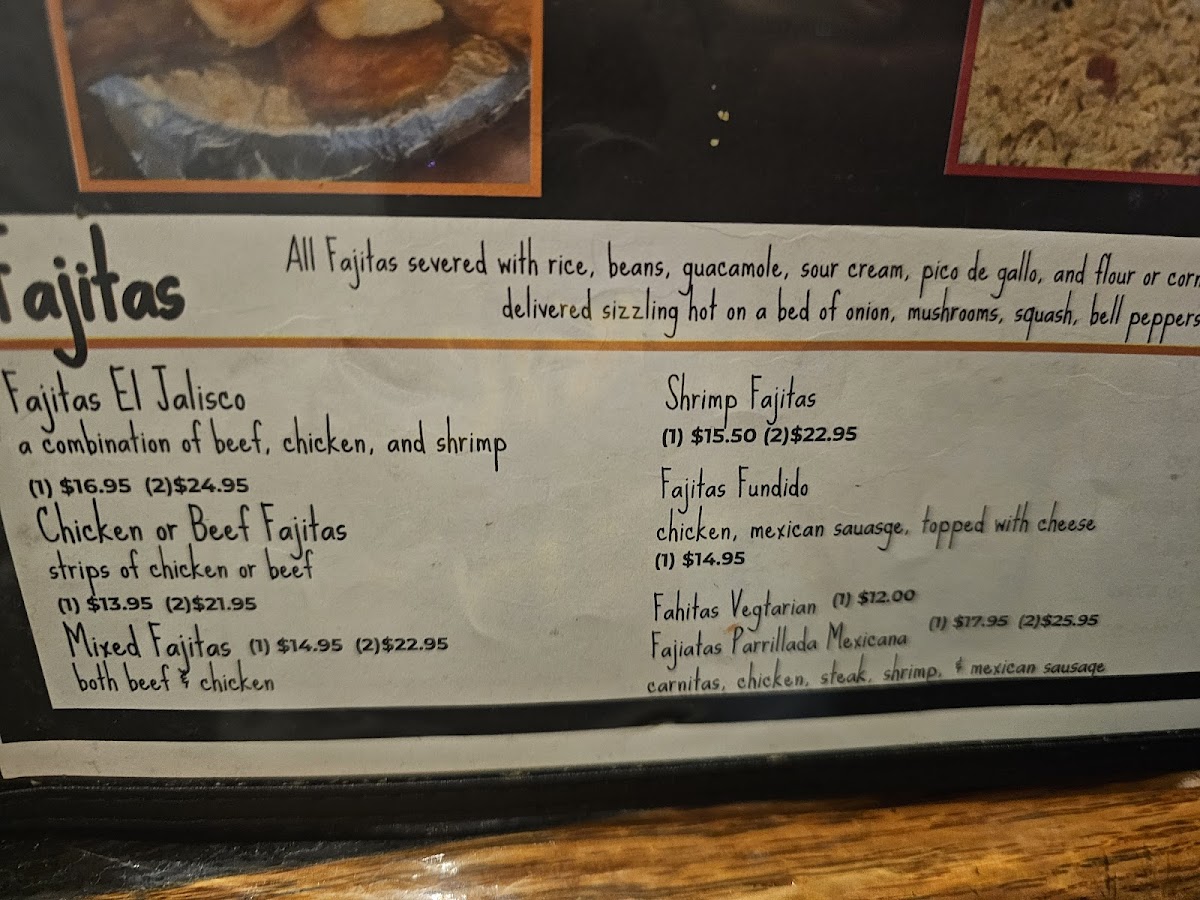 Fajitas
All Fajitas severed with rice, beans, guacamole, sour cream, pico de gallo, and flour or corn
delivered sizzling hot on a bed of onion, mushrooms, squash, bell peppers
Fajitas El Jalisco
a combination of beef, chicken, and shrimp
(1) $16.95 (2)$24.95
Chicken or Beef Fajitas
strips of chicken or beef
(1) $13.95 (2)$21.95
Mixed Fajitas (1) $14.95 (2)$22.95
both beef & chicken
Shrimp Fajitas
(1) $15.50 (2)$22.95
Fajitas Fundido
chicken, mexican sauasge, topped with cheese
(1) $14.95
Fahitas Vegtarian (1) $12.00
Fajiatas Parrillada Mexicana (1) $17.95 (2)$25.95
carnitas, chicken, steak, shrimp, & mexican sausage